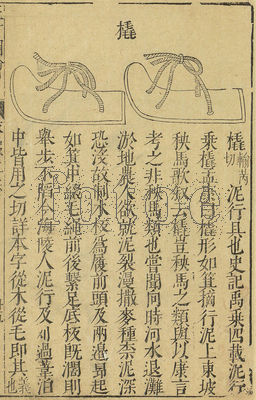 橇
橇輸芮切泥行具也史記禹乘四載泥行
乘橇孟康曰橇形如箕擿行泥上東坡
秧馬歌敘云橇豈秧馬之類與以康言
考之非秧馬類也嘗聞向時河水退灘
淤地農人欲就泥裂漫撒麥種柰泥深
恐沒故制木板為履前頭及兩邊昂起
如箕中綴毛繩前後繫足底板既濶則
舉步不陷今海陵人泥行及刈過葦泊
中皆用之切詳本字從木從毛即其義也